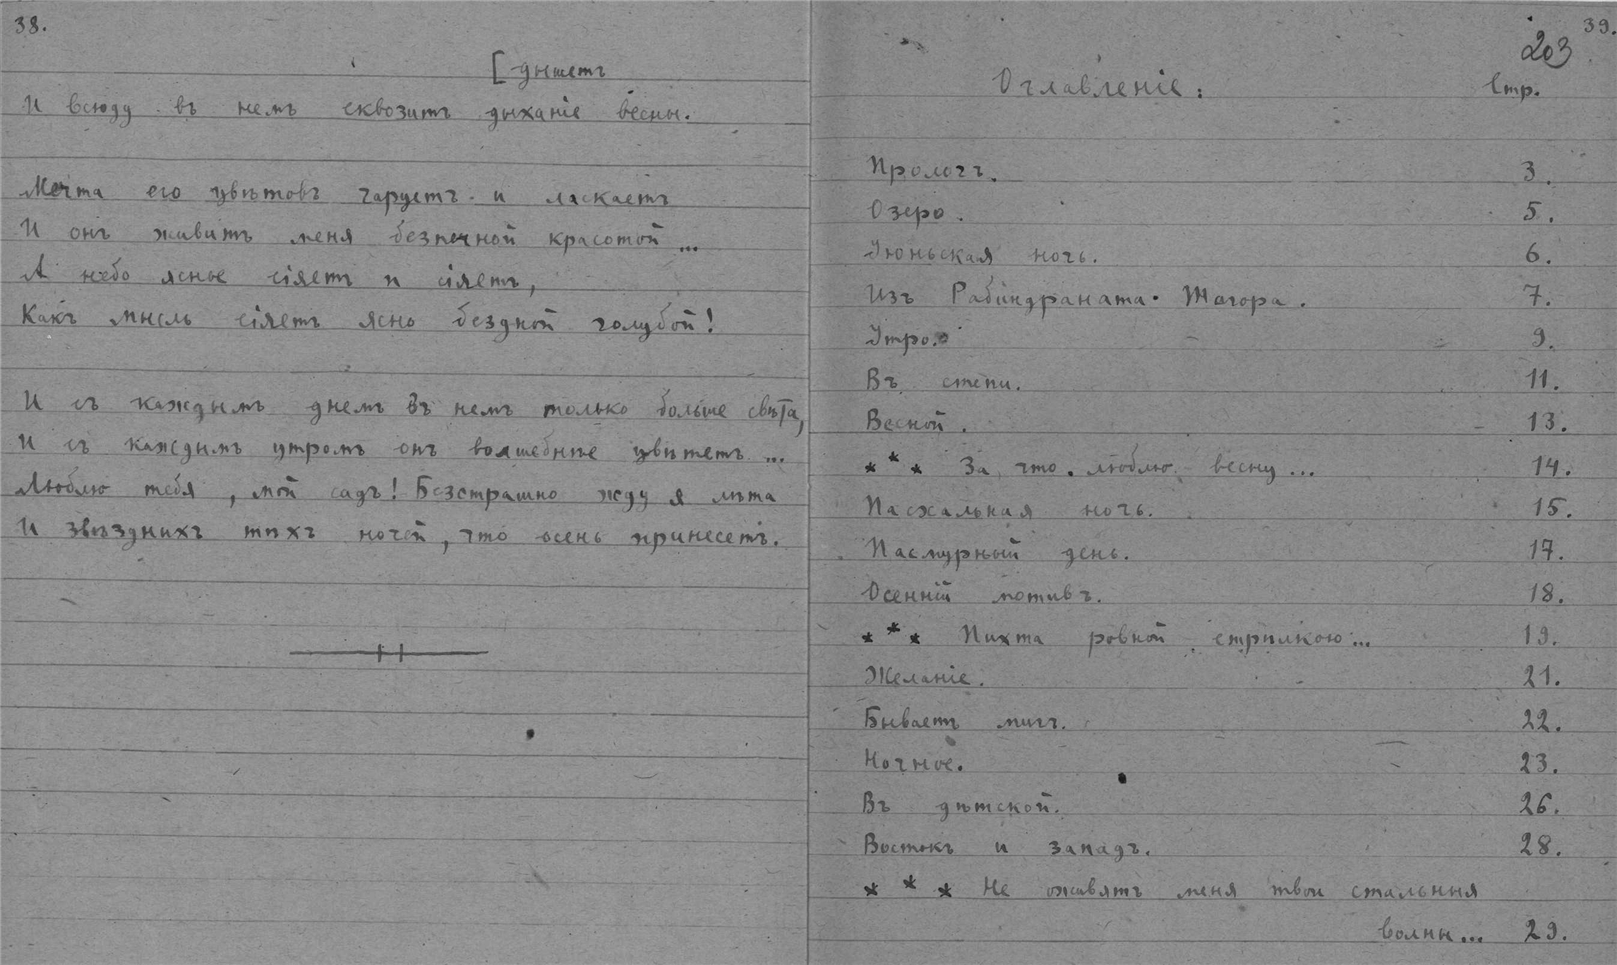 38.
[дышетъ
И всюду въ немъ сквозитъ дыханіе весны.
Мечта его цвѣтовъ чаруетъ и ласкаетъ
И онъ живитъ меня безпечной красотой...
А небо ясное сіяетъ и сіяетъ,
Какъ мысль сіяетъ ясно бездной голубой!
И съ каждымъ днемъ въ немъ только больше свѣта,
И съ каждымъ утромъ онъ волшебнѣе цвѣтетъ...
Люблю тебя, мой садъ! Безстрашно жду я лѣта
И звѣздныхъ тихъ ночей, что осень принесетъ.
39.
203
Оглавленіе: Стр.
Прологъ. 3.
Озеро. 5.
Іюньская ночь. 6.
Изъ Рабиндраната-Тагора. 7.
Утро. 9.
Въ степи. 11.
Весной. 13.
* * * За что люблю весну... 14.
Пасхальная ночь. 15.
Пасмурный день. 17.
Осенній мотивъ. 18.
* * * Пихта ровной стрѣлкою... 19.
Желаніе. 21.
Бываетъ мигъ. 22.
Ночное. 23.
Въ дѣтской. 26.
Востокъ и западъ. 28.
* * * Не оживятъ меня твои стальныя
волны... 29.